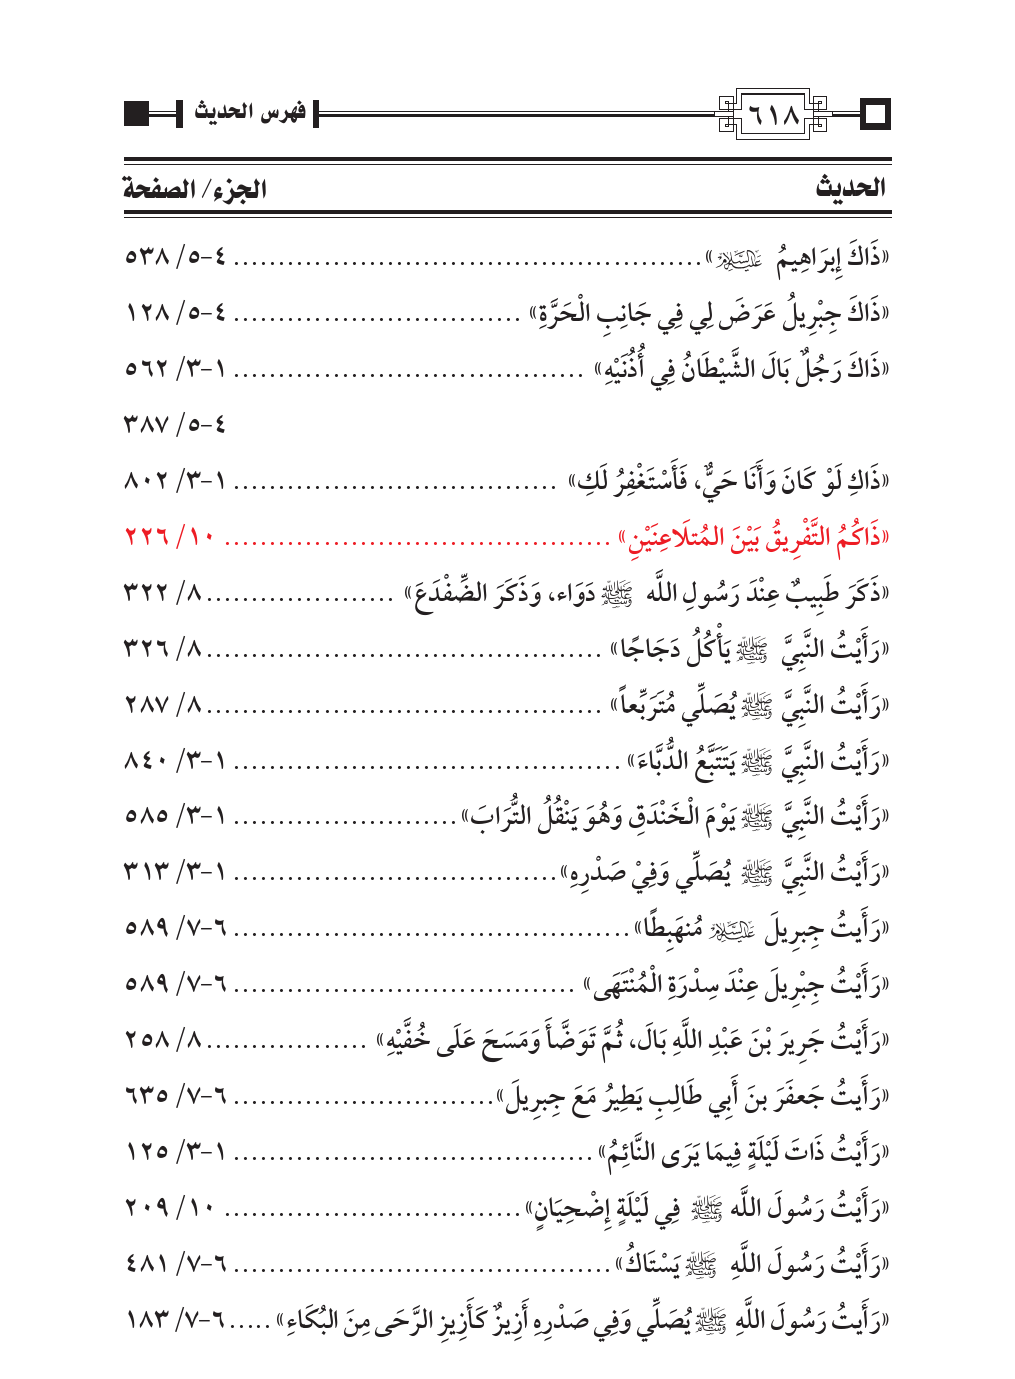 ٦١٨ فهرس الحديث
الحديث الجزء/ الصفحة
«ذَاكَ إِبرَاهِيمُ عليه السلام» ٤-٥/ ٥٣٨
«ذَاكَ جِبْرِيلُ عَرَضَ لِي فِي جَانِبِ الْحَرَّةِ» ٤-٥/ ١٢٨
«ذَاكَ رَجُلٌ بَالَ الشَّيْطَانُ فِي أُذُنَيْهِ» ١-٣/ ٥٦٢
٤-٥/ ٣٨٧
«ذَاكِ لَوْ كَانَ وَأَنَا حَيٌّ، فَأَسْتَغْفِرُ لَكِ» ١-٣/ ٨٠٢
«ذَاكُمُ التَّفْرِيقُ بَيْنَ المُتلَاعِنَيْنِ» ١٠/ ٢٢٦
«ذَكَرَ طَبِيبٌ عِنْدَ رَسُولِ اللَّه ﷺ دَوَاء، وَذَكَرَ الضِّفْدَعَ» ٨/ ٣٢٢
«رَأَيْتُ النَّبِيَّ ﷺ يَأْكُلُ دَجَاجًا» ٨/ ٣٢٦
«رَأَيْتُ النَّبِيَّ ﷺ يُصَلِّي مُتَرَبِّعاً» ٨/ ٢٨٧
«رَأَيْتُ النَّبِيَّ ﷺ يَتَتَبَّعُ الدُّبَّاءَ» ١-٣/ ٨٤٠
«رَأَيْتُ النَّبِيَّ ﷺ يَوْمَ الْخَنْدَقِ وَهُوَ يَنْقُلُ التُّرَابَ» ١-٣/ ٥٨٥
«رَأَيْتُ النَّبِيَّ ﷺ يُصَلِّي وَفِيْ صَدْرِهِ» ١-٣/ ٣١٣
«رَأَيتُ جِبرِيلَ عليه السلام مُنهَبِطًا» ٦-٧/ ٥٨٩
«رَأَيْتُ جِبْرِيلَ عِنْدَ سِدْرَةِ الْمُنْتَهَى» ٦-٧/ ٥٨٩
«رَأَيْتُ جَرِيرَ بْنَ عَبْدِ اللَّهِ بَالَ، ثُمَّ تَوَضَّأَ وَمَسَحَ عَلَى خُفَّيْهِ» ٨/ ٢٥٨
«رَأَيتُ جَعفَرَ بنَ أَبِي طَالِبِ يَطِيرُ مَعَ جِبرِيلَ» ٦-٧/ ٦٣٥
«رَأَيْتُ ذَاتَ لَيْلَةٍ فِيمَا يَرَى النَّائِمُ» ١-٣/ ١٢٥
«رَأَيْتُ رَسُولَ اللَّه ﷺ فِي لَيْلَةٍ إِضْحِيَانٍ» ١٠/ ٢٠٩
«رَأَيْتُ رَسُولَ اللَّهِ ﷺ يَسْتَاكُ» ٦-٧/ ٤٨١
«رَأَيتُ رَسُولَ اللَّهِ ﷺ يُصَلِّي وَفِي صَدْرِهِ أَزِيزٌ كَأَزِيزِ الرَّحَى مِنَ البُكَاءِ» ٦-٧/ ١٨٣